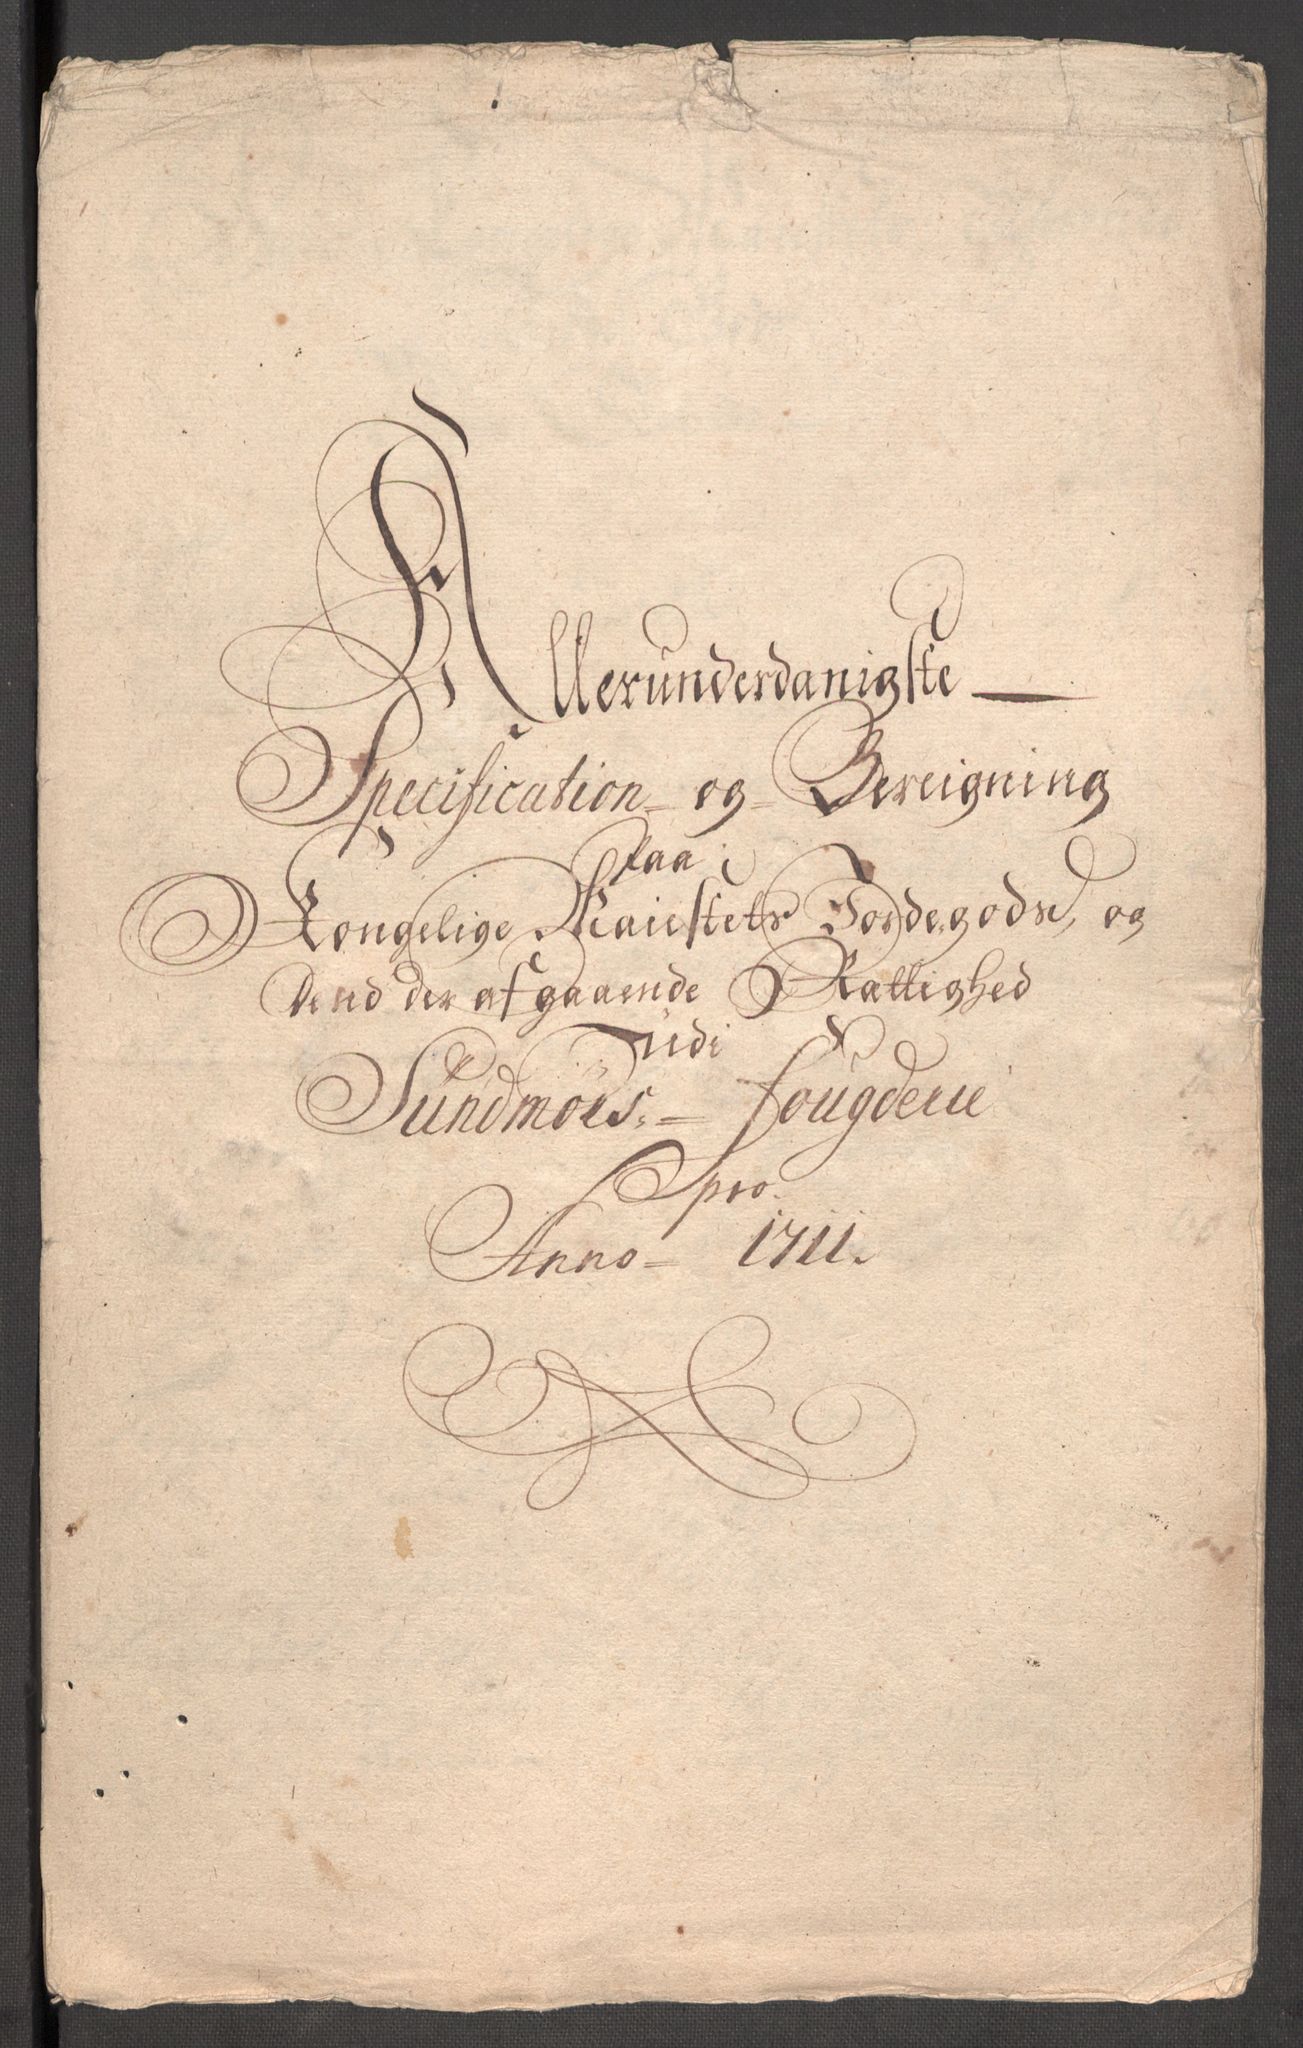 Allerunderdanigste
Specification og Bereigning
Paa
Kongelige Maiestets Jordegods, og
Dend der af gaaende Rattighed
Udi
Sundmörs. Fougderie
pro.
Anno 1711.